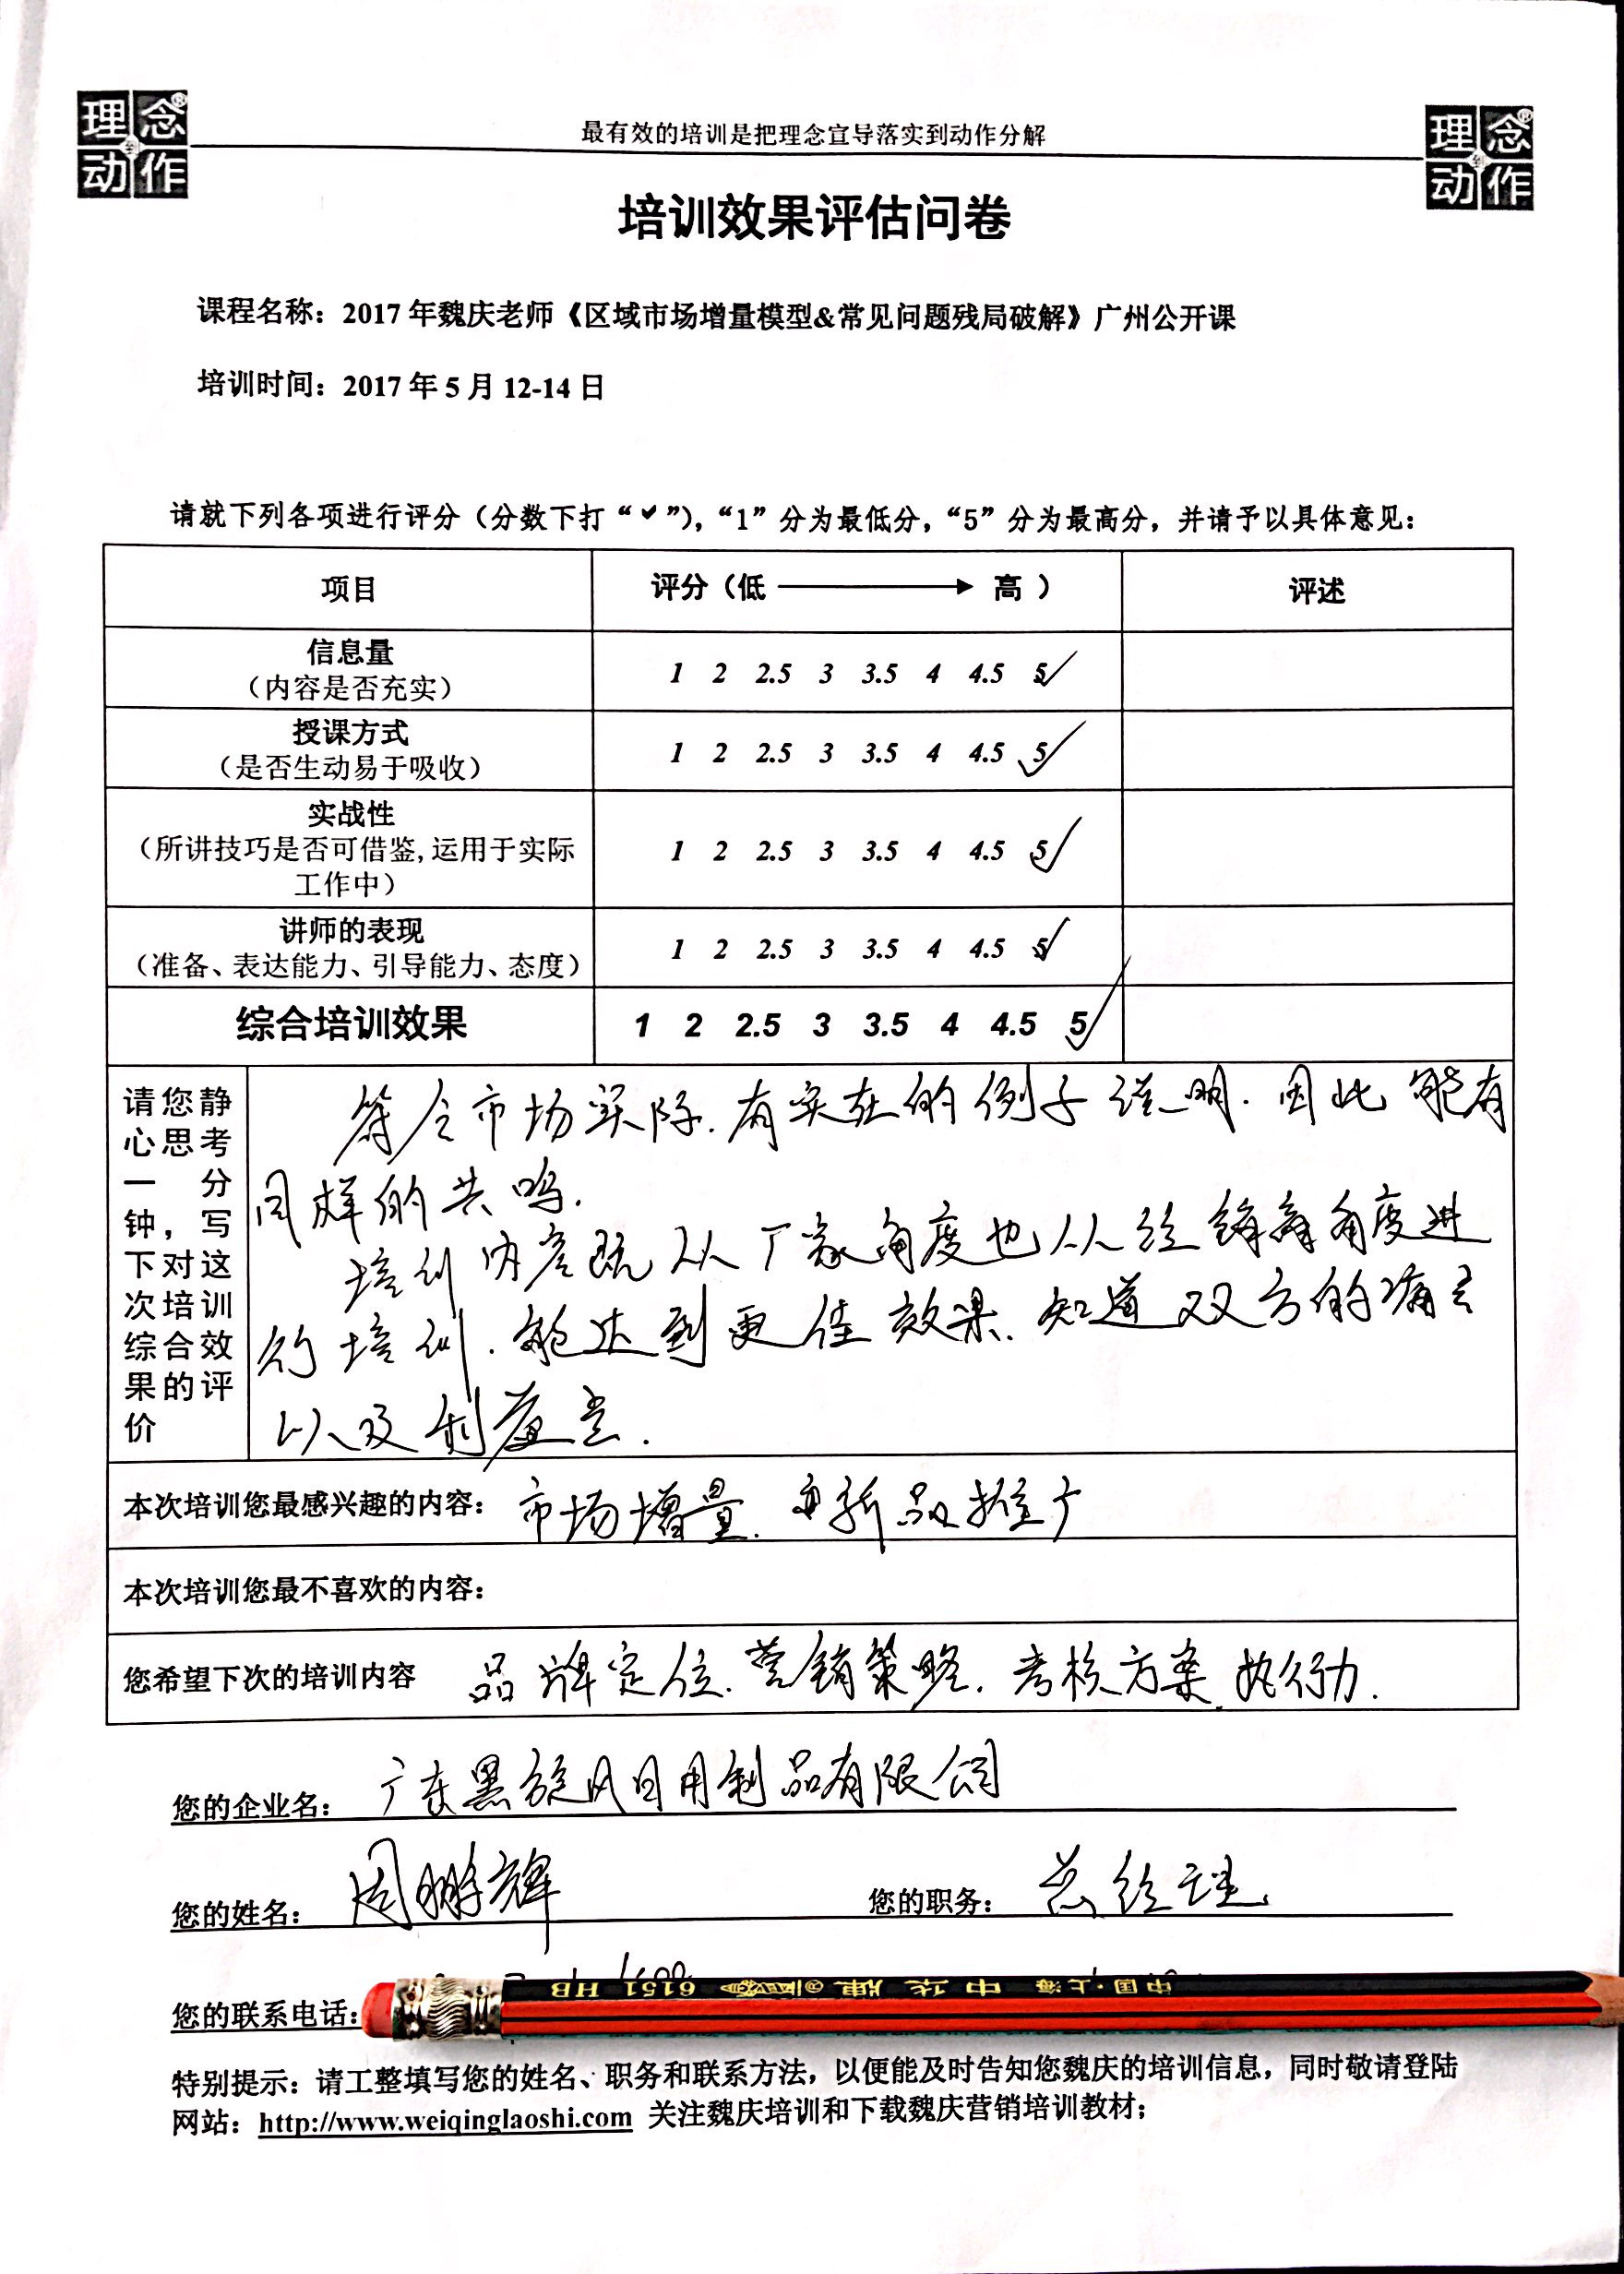 理念
到
动作
最有效的培训是把理念宣导落实到动作分解
理念
到
动作
培训效果评估问卷
课程名称：2017年魏庆老师《区域市场增量模型&常见问题残局破解》广州公开课
培训时间：2017年5月12-14日
请就下列各项进行评分（分数下打“✓”），“1”分为最低分，“5”分为最高分，并请予以具体意见：
项目 评分（低 → 高） 评述
信息量
（内容是否充实）
1 2 2.5 3 3.5 4 4.5 5 ✓
授课方式
（是否生动易于吸收）
1 2 2.5 3 3.5 4 4.5 5 ✓
实战性
（所讲技巧是否可借鉴,运用于实际
工作中）
1 2 2.5 3 3.5 4 4.5 5 ✓
讲师的表现
（准备、表达能力、引导能力、态度）
1 2 2.5 3 3.5 4 4.5 5 ✓
综合培训效果 1 2 2.5 3 3.5 4 4.5 5 ✓
请您静
心思考
一分
钟，写
下对这
次培训
综合效
果的评
价
符合市场实际.有实在的例子说明.因此能有
同样的共鸣.
培训内容既从厂家角度也从经销商角度进
行培训.能达到更佳效果.知道双方的痛点
以及利益点.
本次培训您最感兴趣的内容：市场增量.新品推广
本次培训您最不喜欢的内容：
您希望下次的培训内容 品牌定位.营销策略.考核方案.执行力.
您的企业名：广东黑旋风日用制品有限公司
您的姓名：周鹏辉 您的职务：总经理
您的联系电话：
6151 HB 中华牌 中国·上海
特别提示：请工整填写您的姓名、职务和联系方法，以便能及时告知您魏庆的培训信息，同时敬请登陆
网站：http://www.weiqinglaoshi.com 关注魏庆培训和下载魏庆营销培训教材；